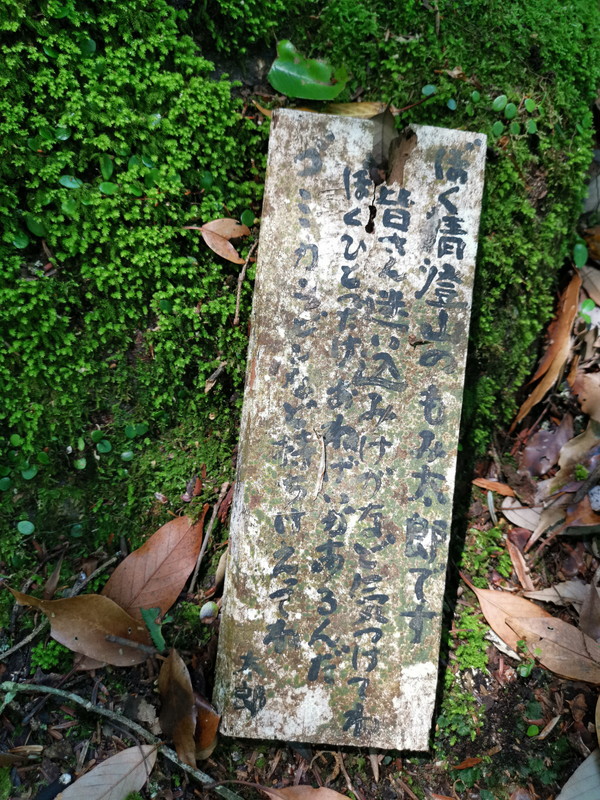 ぼく清澄山のもみ太郎です
皆さん迷い込みけがないに気つけてね
ぼくひとつだけおねがいがあるんだ
ゴミカラどなど持ちけえてね
太郎